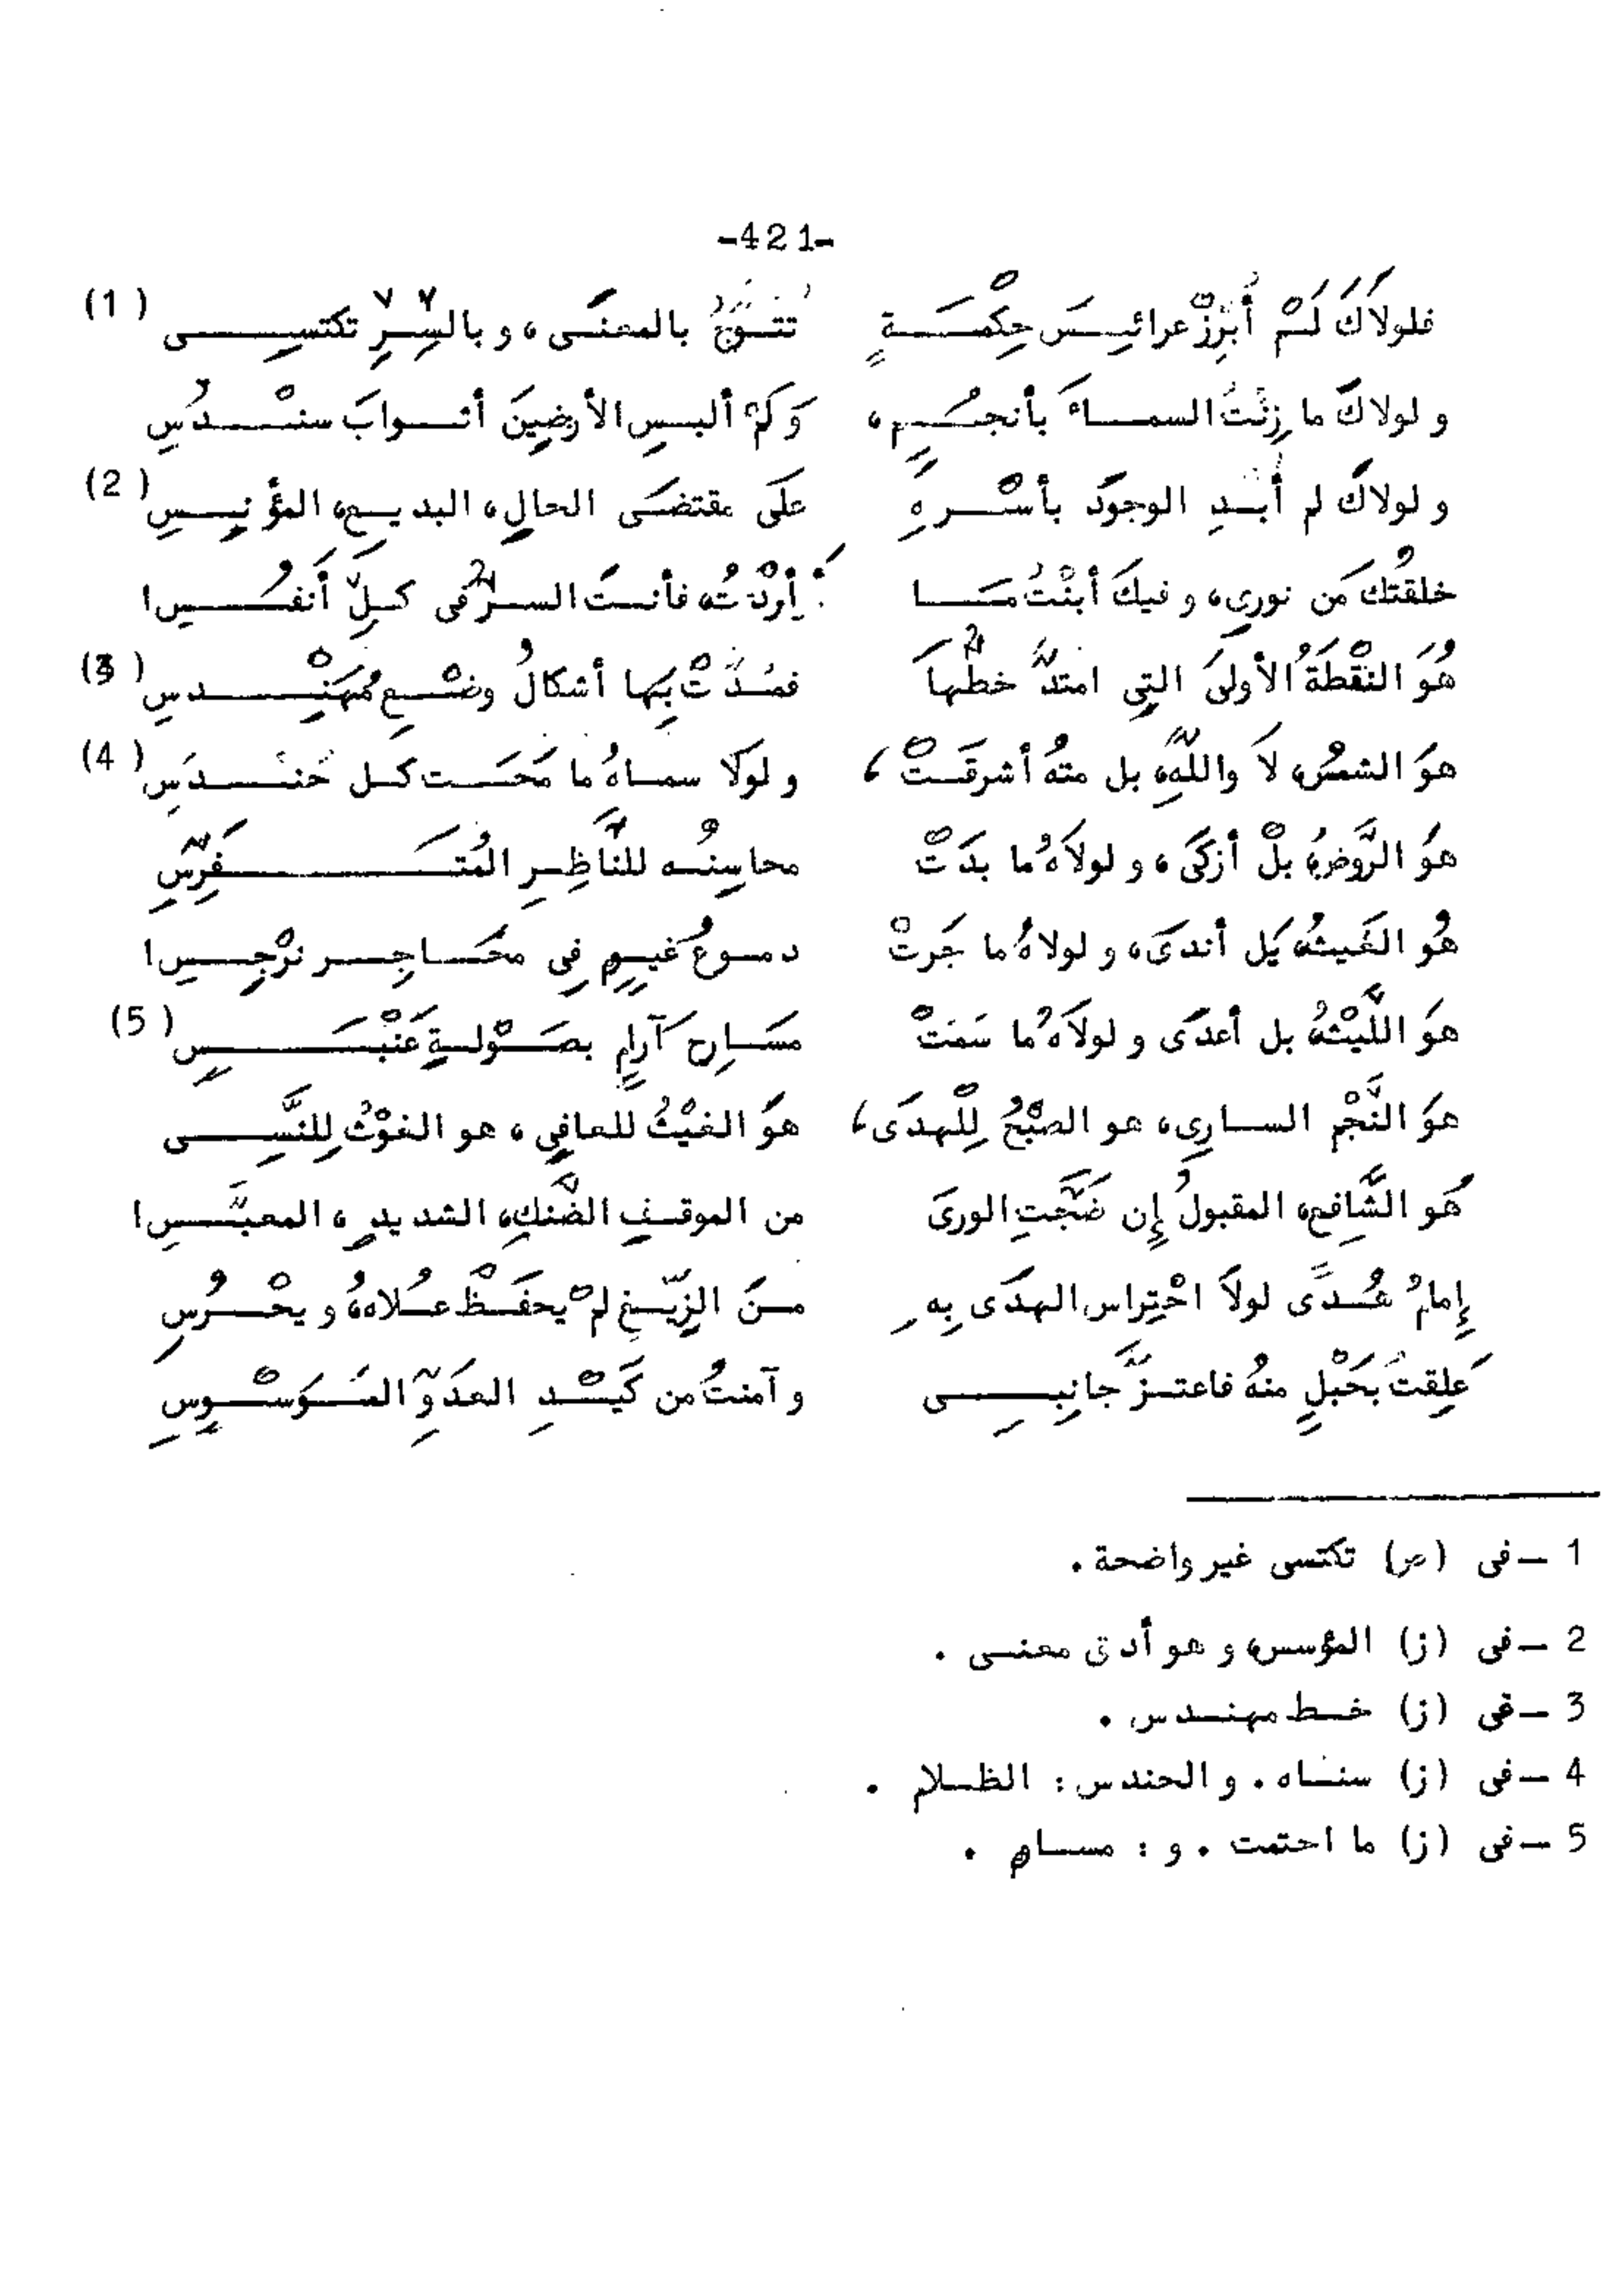 -421-
فلولاكَ لَمْ أُبْرِزْ عرائِسَ حِكْمَةٍ تتوَّجُ بالمعنَى، و بالسِّرِّ تكتسِى (1)
و لولاكَ ما زِنْتُ السماءَ بأنجُمٍ، وَ لَمْ ألبسِ الأرضِينَ أثوابَ سنْدُسِ
و لولاكَ لم أُبْدِ الوجودَ بأسْرِهِ علَى مقتضَى الحالِ، البديعِ، المؤنِسِ (2)
خلقتُكَ مَن نورِى، و فيكَ أبنْتُ مَا أردْتُه، فأنستَ السرَّ فى كلِّ أنفُسِ!
هُوَ النُّقْطَةُ الأولَى التِى امتدَّ خطُّهَا فمُدَّتْ بِهَا أشكالُ وضْعِ مُهَنْدِسِ (3)
هوَ الشمسُ، لاَ واللَّهِ، بل منهُ أشرقَتْ، و لولَا سماهُ ما مَحَت كل حَندَسِ (4)
هوَ الرَّوضُ، بلْ أزكَى، و لولاَهُ ما بدَتْ محاسِنُه للنَّاظِرِ المُتَفَرِّسِ
هُو الغَيثُ، بَل أندَى، و لولاهُ ما جَرتْ دموعُ غيمٍ فِى محَاجِر نرْجِسِ!
هوَ اللَّيْثُ، بل أعدَى و لولاَهُ ما سَمَتْ مسَارِح آرامٍ بصَوْلةِ عَنْبَسِ (5)
هوَ النَّجْم السارِى، هو الصبْحُ لِلْهدَى، هوَ الغيْثُ للعافِى، هو الغوْثُ لِلنَّسِى
هُو الشَّافِع، المقبولُ إِن ضَجَّتِ الورىَ من الموقفِ الضَّنكِ، الشديدِ، المعبَّسِ!
إِمامُ هُدًى لولاَ احْتِراس الهدَى بِهِ منَ الزَّيغِ لمْ يحفَظْ عُلاهُ، و يحْرُسِ
عَلِقتُ بحَبْلٍ منهُ فاعتزَّ جانِبِى و آمنتُ من كَيْدِ العدَوِّ المَوَسْوِسِ
1 ـ فى (س) تكتسى غير واضحة .
2 ـ فى (ز) المؤسس، و هو أدق معنى .
3 ـ فى (ز) خط مهندس .
4 ـ فى (ز) سناه . و الحندس : الظلام .
5 ـ فى (ز) ما احتمت . و : مسام .